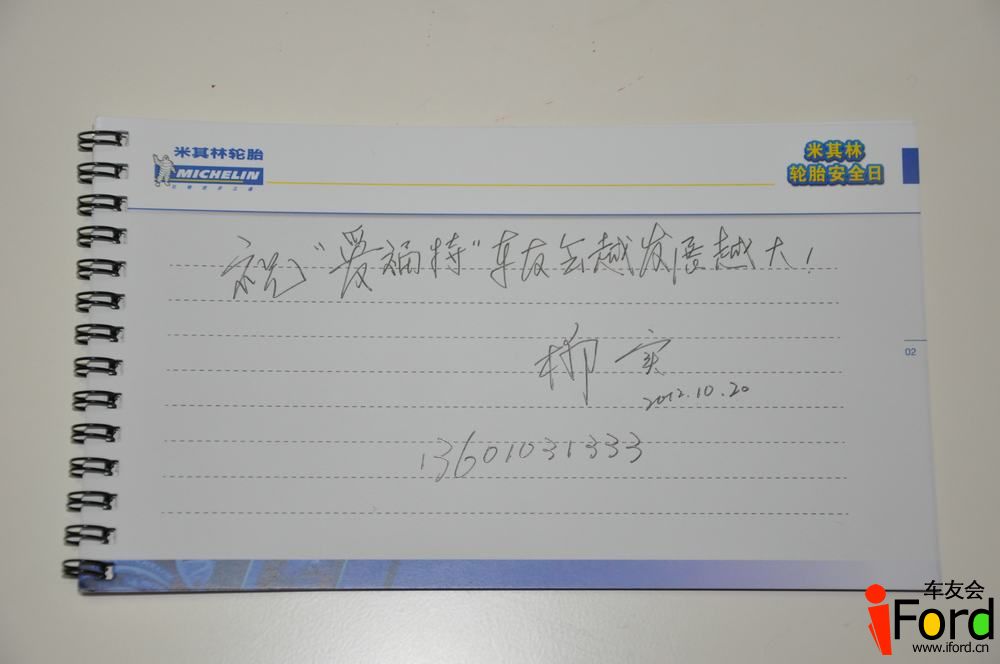 米其林轮胎
MICHELIN
米其林
轮胎安全日
祝“爱福特”车友会越发展越大！
柳实
2012.10.20
02
13601031333
车友会
iFord
www.iford.cn